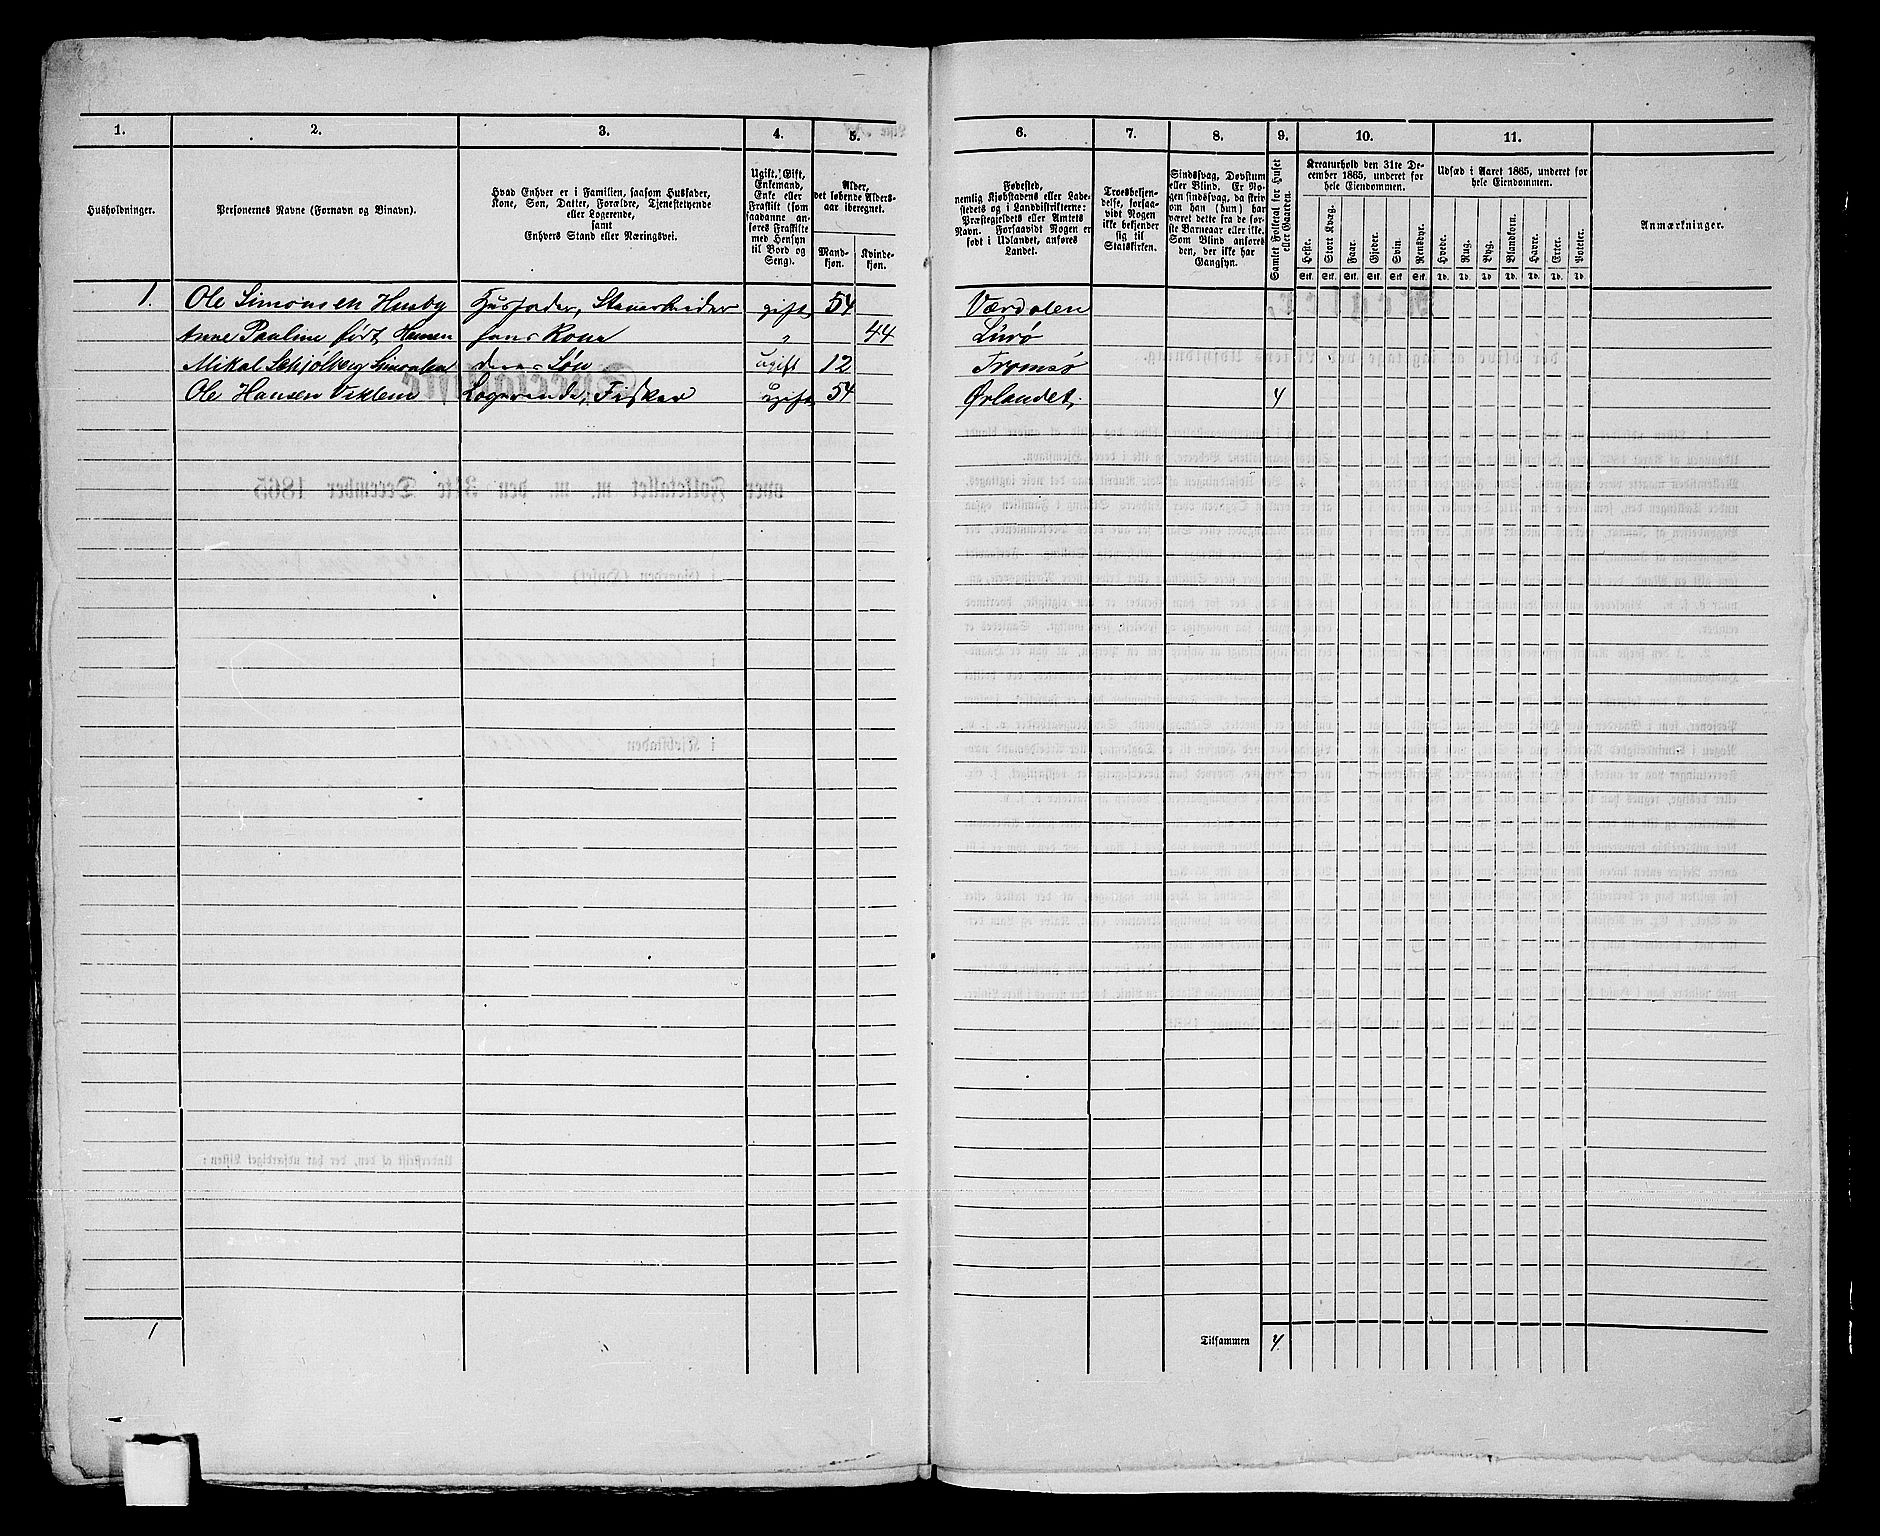 1. 2. 3. 4. 5. 6. 7. 8. 9. 10. 11.
Husholdninger.
Personernes Navne (Fornavn og Binavn).
Hvad Enhver er i Familien, saasom Husfader,
Kone, Søn, Datter, Forældre, Tjenestetyende
eller Logerende,
samt
Enhvers Stand eller Næringsvei.
Ugift, Gift,
Enkemand,
Enke eller
Fraskilt (som
saadanne an-
føres Fraskilte
med Hensyn
til Bord og
Seng).
Alder,
det løbende Alders-
aar iberegnet.
Mand-
kjøn.
Kvinde-
kjøn.
Fødested,
nemlig Kjøbstadens eller Lade-
stedets og i Landdistrikterne:
Præstegjeldets eller Amtets
Navn. Forsaavidt Nogen er
født i Udlandet, anføres
Landet.
Troesbekjen-
delse, forsaa-
vidt Nogen
ikke bekjender
sig til
Statskirken.
Sindssvag, Døvstum
eller Blind. Er No-
gen sindssvag, da skrives
om han (hun) har
været dette fra de før-
ste Barneaar eller ikke.
Som Blind anføres
den, der ikke har
Gangsyn.
Samlet Folketal for Huset
eller Gaarden.
Kreaturhold den 31te De-
cember 1865, underet for
hele Eiendommen.
Heste. Stort Kvæg. Faar. Gjeder. Svin. Rensdyr.
Stk. Stk. Stk. Stk. Stk. Stk.
Udsæd i Aaret 1865, underet for
hele Eiendommen.
Hvede. Rug. Byg. Blandkorn. Havre. Erter. Poteter.
Td. Td. Td. Td. Td. Td. Td.
Anmærkninger.
1. Ole Simonsen Husby Husfader, Stenarbeider gift 54 Værdalen
Anne Pauline født Hansen hans Kone " 44 Lurø
Mikal Schjølberg Simonsen deres Søn ugift 12 Tromsø
Ole Hansen Viklem Logerende, Fisker ugift 54 Ørlandet. 4
1
Tilsammen 4.